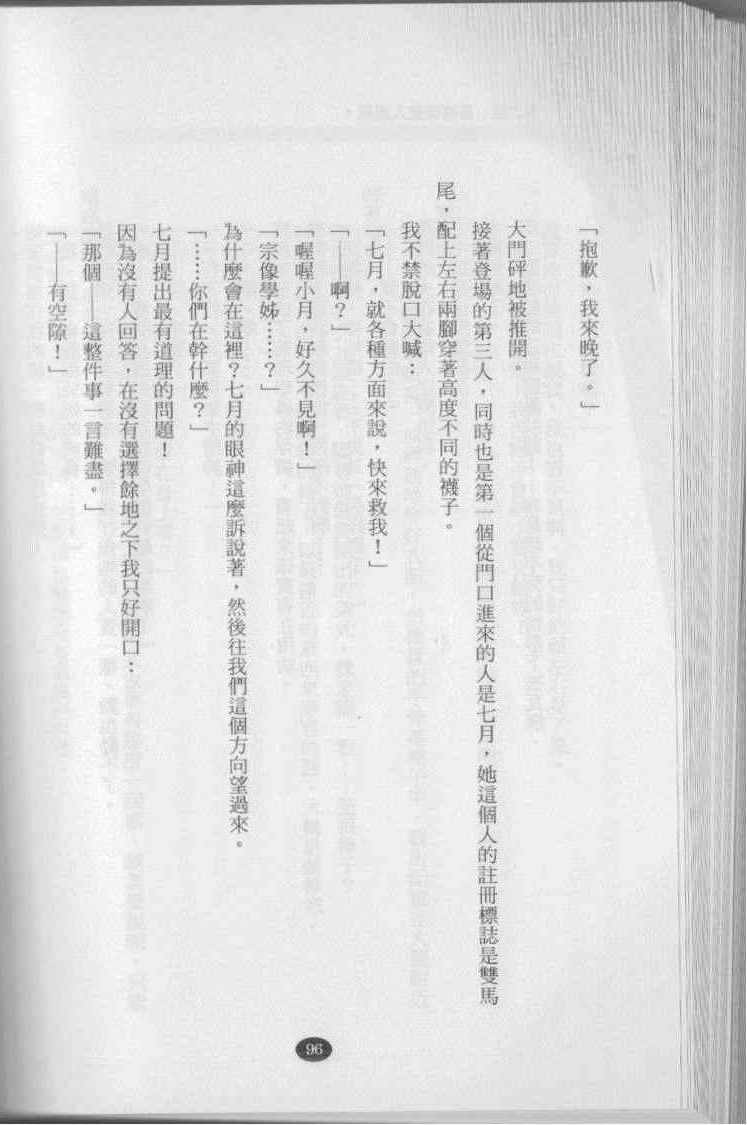 「抱歉，我來晚了。」
大門砰地被推開。
接著登場的第三人，同時也是第一個從門口進來的人是七月，她這個人的註冊標誌是雙馬
尾，配上左右兩腳穿著高度不同的襪子。
我不禁脫口大喊：
「七月，就各種方面來說，快來救我！」
「——啊？」
「喔喔小月，好久不見啊！」
「宗像學姊……？」
為什麼會在這裡？七月的眼神這麼訴說著，然後往我們這個方向望過來。
「……你們在幹什麼？」
七月提出最有道理的問題！
因為沒有人回答，在沒有選擇餘地之下我只好開口：
「那個——這整件事一言難盡。」
「——有空隙！」
96